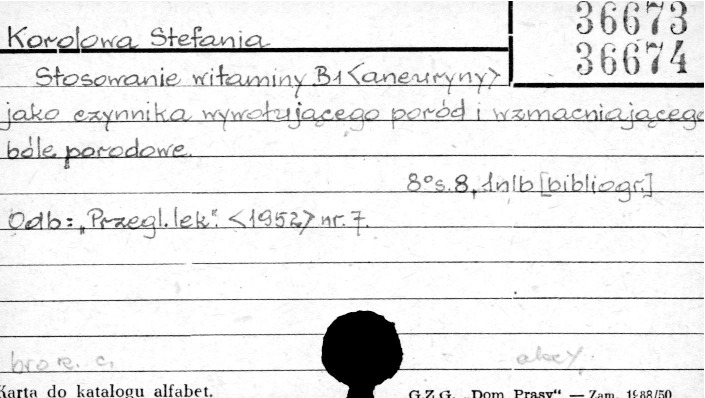 36673
Korolowa Stefania
36674
Stosowanie witaminy B1 <aneuryny>
jako czynnika wywołującego poród i wzmacniającego
bóle porodowe.
8°s.8, 1nlb [bibliogr.]
Odb: „Przegl. lek". <1952> nr. 7.
Karta do katalogu alfabet.
G.Z.G. „Dom Prasy" — Zam. 1988/50